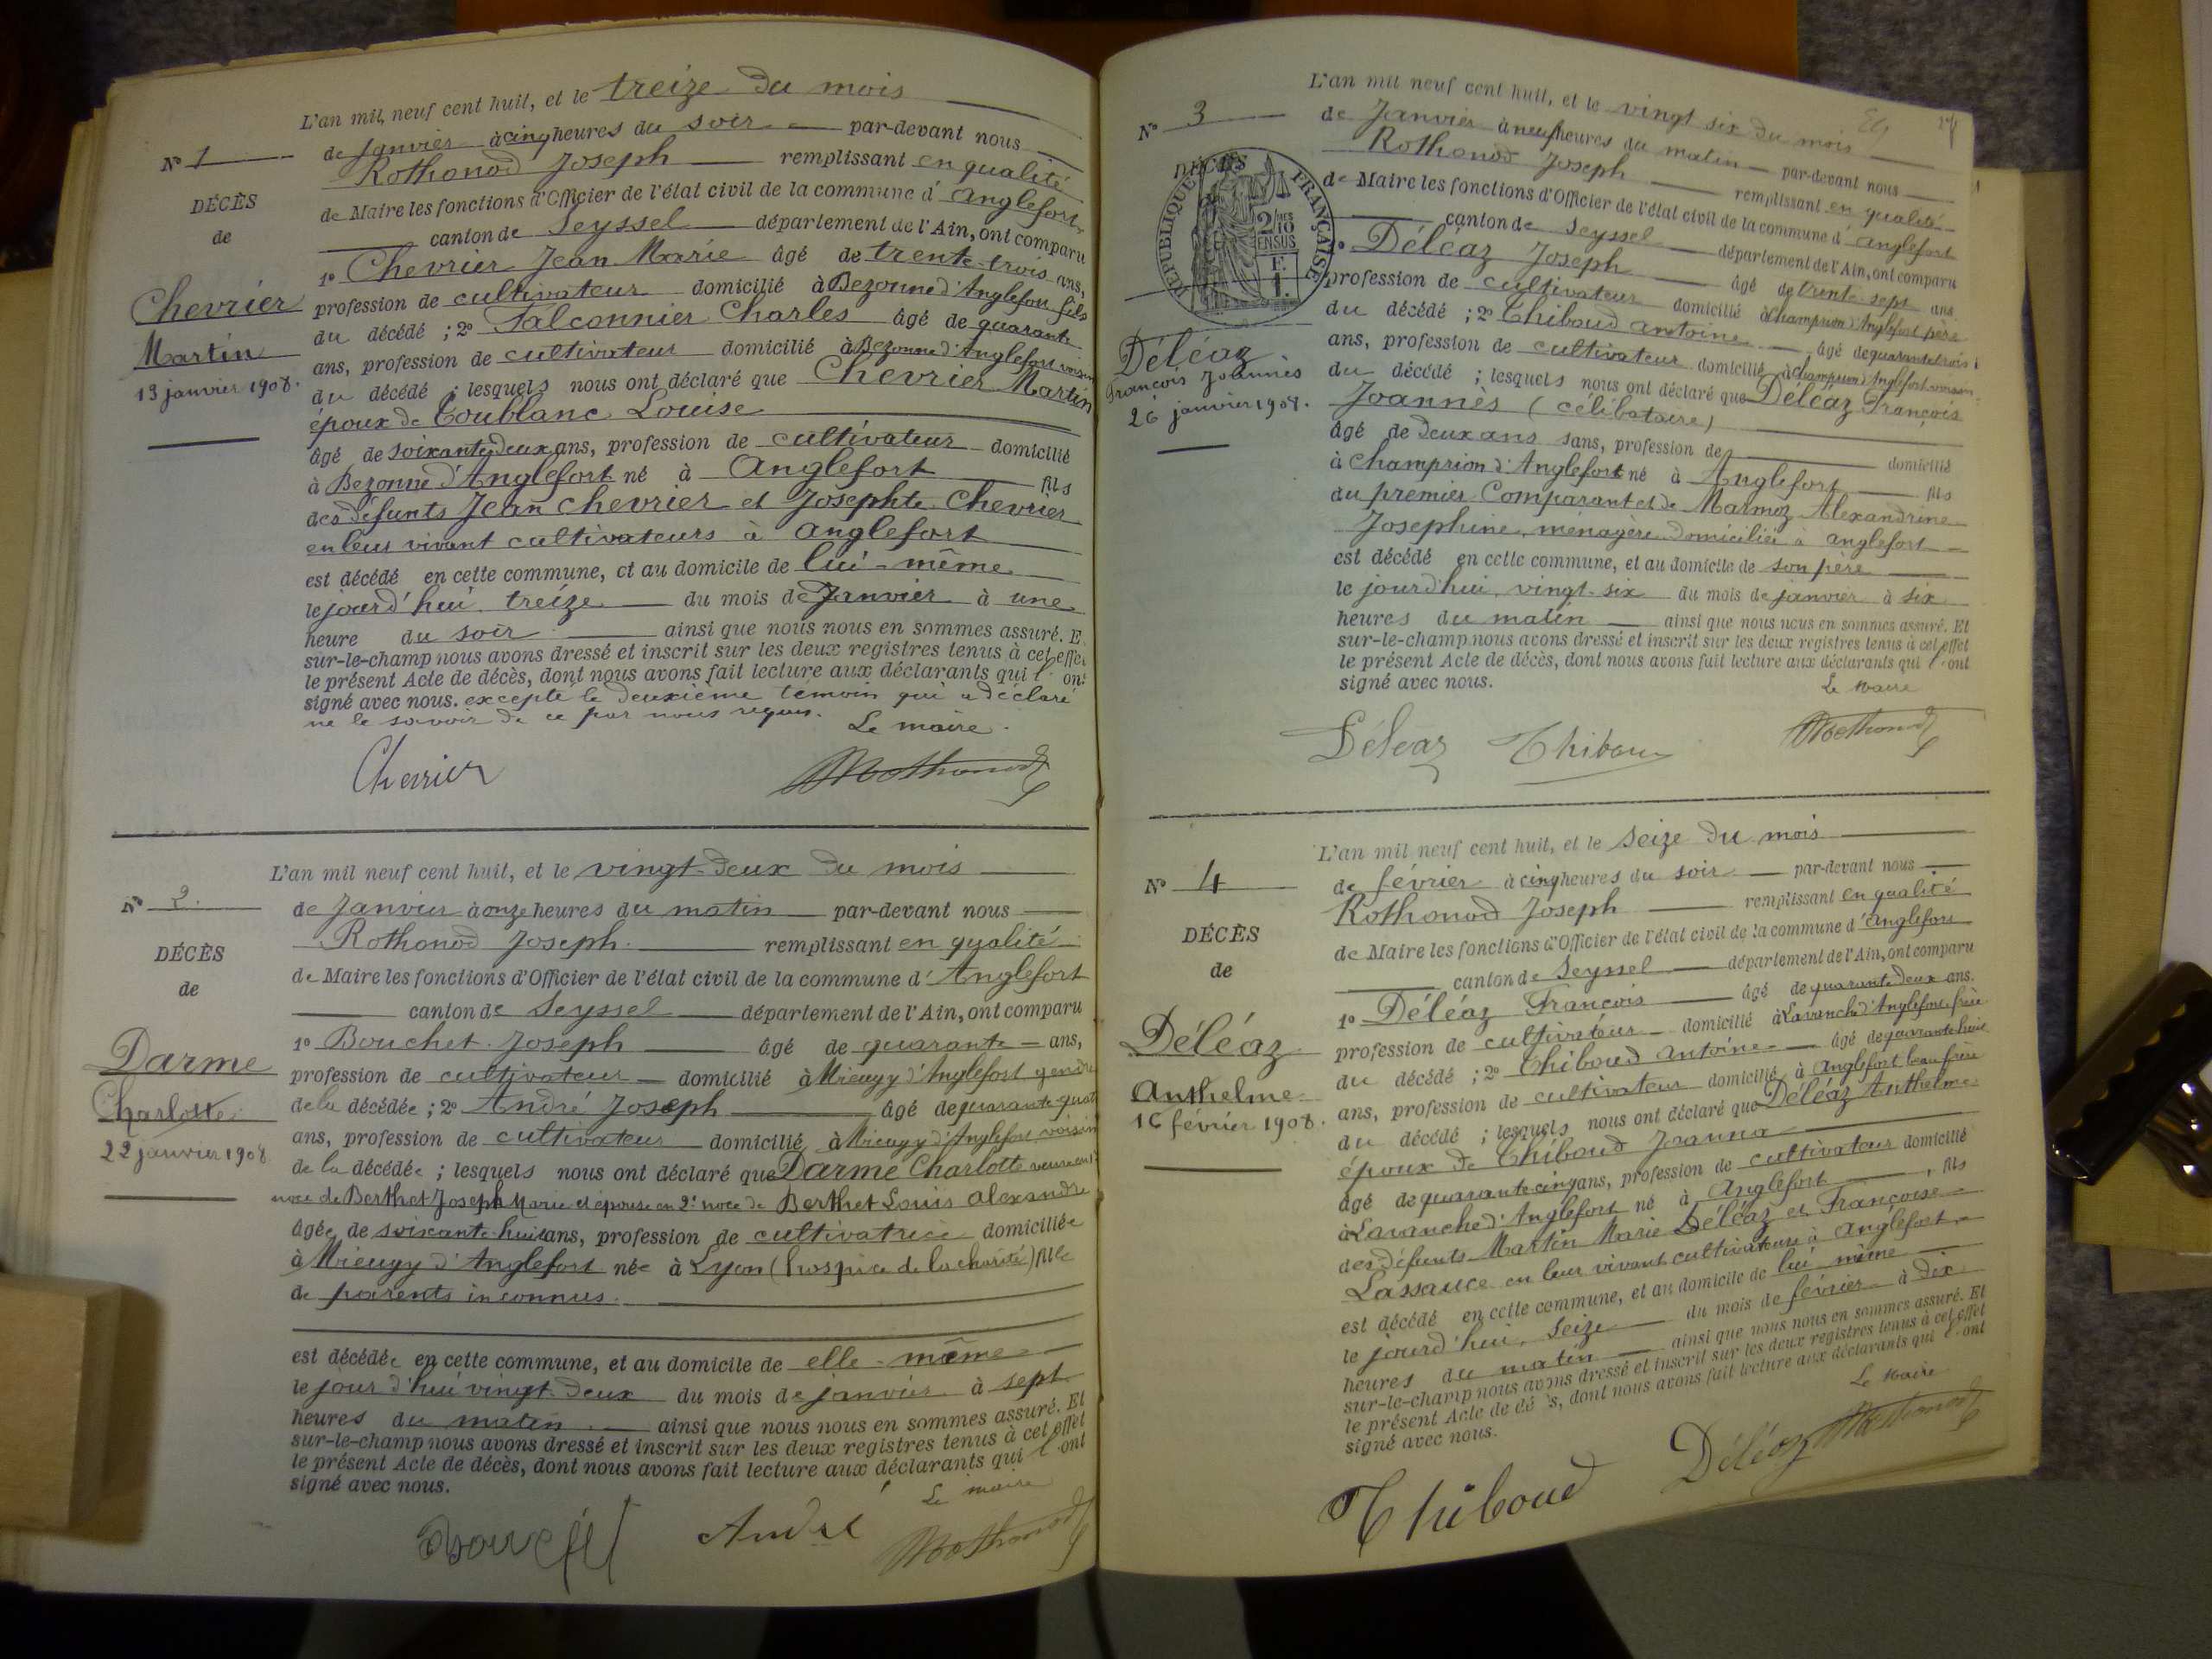 L'an mil neuf cent huit, et le treize du mois
de Janvier à cinq heures du soir par-devant nous
Rothonod Joseph remplissant en qualité
de Maire les fonctions d'Officier de l'état civil de la commune d'Anglefort
canton de Seyssel département de l'Ain, ont comparu
1º Chevrier Jean Marie âgé de trente-trois ans,
profession de cultivateur domicilié à Bezonne d'Anglefort fils
du décédé ; 2º Falconnier Charles âgé de quarante
ans, profession de cultivateur domicilié à Bezonne d'Anglefort voisin
du décédé ; lesquels nous ont déclaré que Chevrier Martin
époux de Toublanc Louise
âgé de soixante deux ans, profession de cultivateur domicilié
à Bezonne d'Anglefort né à Anglefort fils
des défunts Jean Chevrier et Josephte Chevrier
en leur vivant cultivateurs à Anglefort
est décédé en cette commune, et au domicile de lui-même
le jourd'hui treize du mois de Janvier à une
heure du soir ainsi que nous nous en sommes assuré. E
sur-le-champ nous avons dressé et inscrit sur les deux registres tenus à cet effet
le présent Acte de décès, dont nous avons fait lecture aux déclarants qui l'ont
signé avec nous. excepté le deuxième témoin qui a déclaré
ne le savoir de ce par nous requis.
Le maire
Chevrier Rothonod
Nº 1
DÉCÈS
de
Chevrier
Martin
13 janvier 1908.
L'an mil neuf cent huit, et le vingt-deux du mois
de Janvier à onze heures du matin par-devant nous
Rothonod Joseph remplissant en qualité
de Maire les fonctions d'Officier de l'état civil de la commune d'Anglefort
canton de Seyssel département de l'Ain, ont comparu
1º Bouchet Joseph âgé de quarante ans,
profession de cultivateur domicilié à Mieugy d'Anglefort gendre
de la décédée ; 2º André Joseph âgé de quarante quat
ans, profession de cultivateur domicilié à Mieugy d'Anglefort voisin
de la décédée ; lesquels nous ont déclaré que Darme Charlotte veuve en 1
noce de Berthet Joseph Marie et épouse en 2e noce de Berthet Louis Alexandre
âgée de soixante-huit ans, profession de cultivatrice domiciliée
à Mieugy d'Anglefort née à Lyon (hospice de la charité) fille
de parents inconnus.
est décédée en cette commune, et au domicile de elle-même
le jour d'hui vingt-deux du mois de janvier à sept
heures du matin ainsi que nous nous en sommes assuré. Et
sur-le-champ nous avons dressé et inscrit sur les deux registres tenus à cet effet
le présent Acte de décès, dont nous avons fait lecture aux déclarants qui l'ont
signé avec nous.
Le maire
Bouchet André Rothonod
Nº 2.
DÉCÈS
de
Darme
Charlotte
22 janvier 1908
L'an mil neuf cent huit, et le vingt six du mois
de Janvier à neuf heures du matin par-devant nous
Rothonod Joseph remplissant en qualité
de Maire les fonctions d'Officier de l'état civil de la commune d'Anglefort
canton de Seyssel département de l'Ain, ont comparu
1º Déléaz Joseph âgé de trente-sept ans
profession de cultivateur domicilié à Champrion d'Anglefort père
du décédé ; 2º Thiboud Antoine âgé de quarante trois
ans, profession de cultivateur domicilié à Champrion d'Anglefort voisin
du décédé ; lesquels nous ont déclaré que Déléaz François
Joannès (célibataire)
âgé de deux ans sans, profession de domicilié
à Champrion d'Anglefort né à Anglefort fils
du premier Comparant et de Marmoz Alexandrine
Josephine, ménagère domiciliée à Anglefort
est décédé en cette commune, et au domicile de son père
le jourd'hui, vingt-six du mois de janvier à six
heures du matin ainsi que nous nous en sommes assuré. Et
sur-le-champ nous avons dressé et inscrit sur les deux registres tenus à cet effet
le présent Acte de décès, dont nous avons fait lecture aux déclarants qui l'ont
signé avec nous.
Le Maire
Déléaz Thiboud Rothonod
Nº 3
DÉCÈS
RÉPUBLIQUE FRANÇAISE
2/10 EN SUS
Déléaz
François Joannès
26 janvier 1908.
L'an mil neuf cent huit, et le seize du mois
de février à cinq heures du soir par-devant nous
Rothonod Joseph remplissant en qualité
de Maire les fonctions d'Officier de l'état civil de la commune d'Anglefort
canton de Seyssel département de l'Ain, ont comparu
1º Déléaz François âgé de quarante deux ans.
profession de cultivateur domicilié à Lavanche d'Anglefort frère
du décédé ; 2º Thiboud Antoine âgé de quarante huit
ans, profession de cultivateur domicilié à Anglefort beau frère
du décédé ; lesquels nous ont déclaré que Déléaz Anthelme
époux de Thiboud Joanna
âgé de quarante cinq ans, profession de cultivateur domicilié
à Lavanche d'Anglefort né à Anglefort, fils
des défunts Martin Marie Déléaz et Françoise
Lassauce en leur vivant cultivateurs à Anglefort
est décédé en cette commune, et au domicile de lui même
le jourd'hui, seize du mois de février à dix
heures du matin ainsi que nous nous en sommes assuré. Et
sur-le-champ nous avons dressé et inscrit sur les deux registres tenus à cet effet
le présent Acte de décès, dont nous avons fait lecture aux déclarants qui l'ont
signé avec nous.
Le Maire
Thiboud Déléaz Rothonod
Nº 4
DÉCÈS
de
Déléaz
Anthelme
16 février 1908.